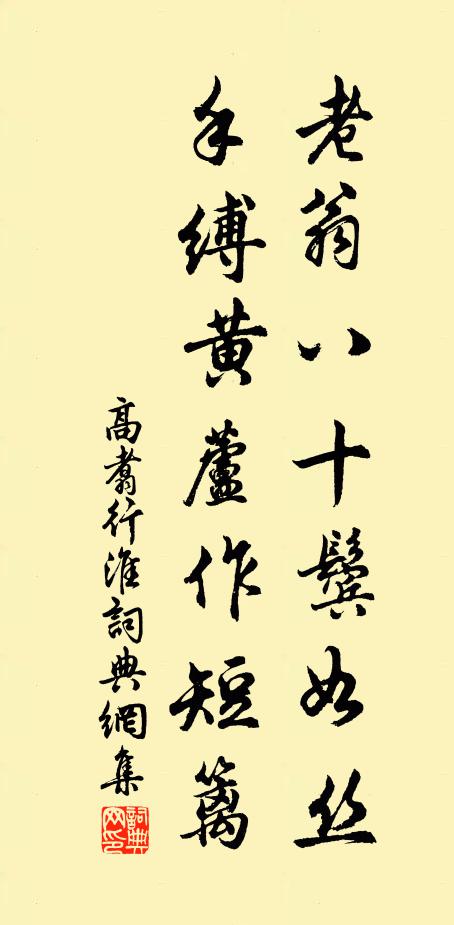 老翁八十鬓如丝
手缚黄蘆作短篱
高翥行淮詞典網集
詞典网印